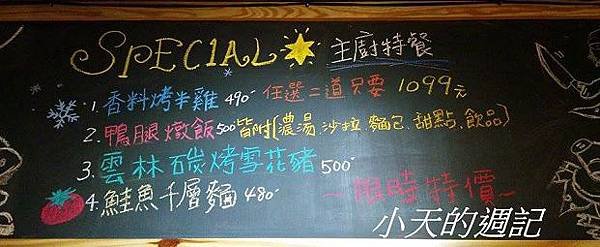 SPECIAL 主廚特餐
1. 香料烤半雞 490 任選二道只要 1099元
2. 鴨腿燉飯 500 皆附{濃湯、沙拉、麵包、甜點、飲品}
3. 雲林碳烤雪花豬 500
4. 鮭魚千層麵 480 ~限時特價~
小天的週記